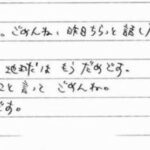 。ごめんね、昨日ちらっと話し
はもうだめです。
と言って ごめんね。
です。